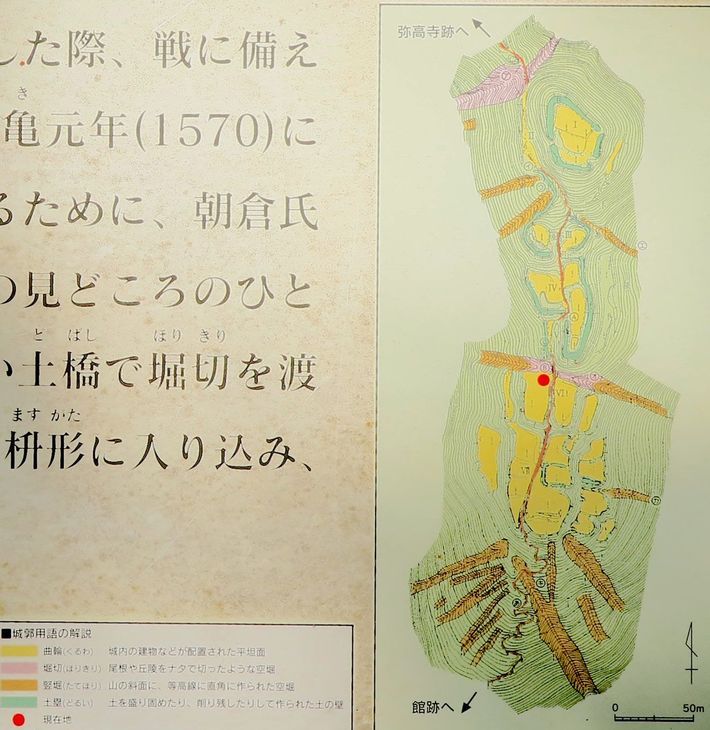 した際、戦に備え
き
亀元年(1570)に
るために、朝倉氏
の見どころのひと
と ばし ほり きり
い土橋で堀切を渡
ます かた
枡形に入り込み、
■城郭用語の解説
曲輪(くるわ) 城内の建物などが配置された平坦面
堀切(ほりきり) 尾根や丘陵をナタで切ったような空堀
竪堀(たてほり) 山の斜面に、等高線に直角に作られた空堀
土塁(どるい) 土を盛り固めたり、削り残したりして作られた土の壁
現在地
弥高寺跡へ
I
II
III
IV
VII
館跡へ
0 50m